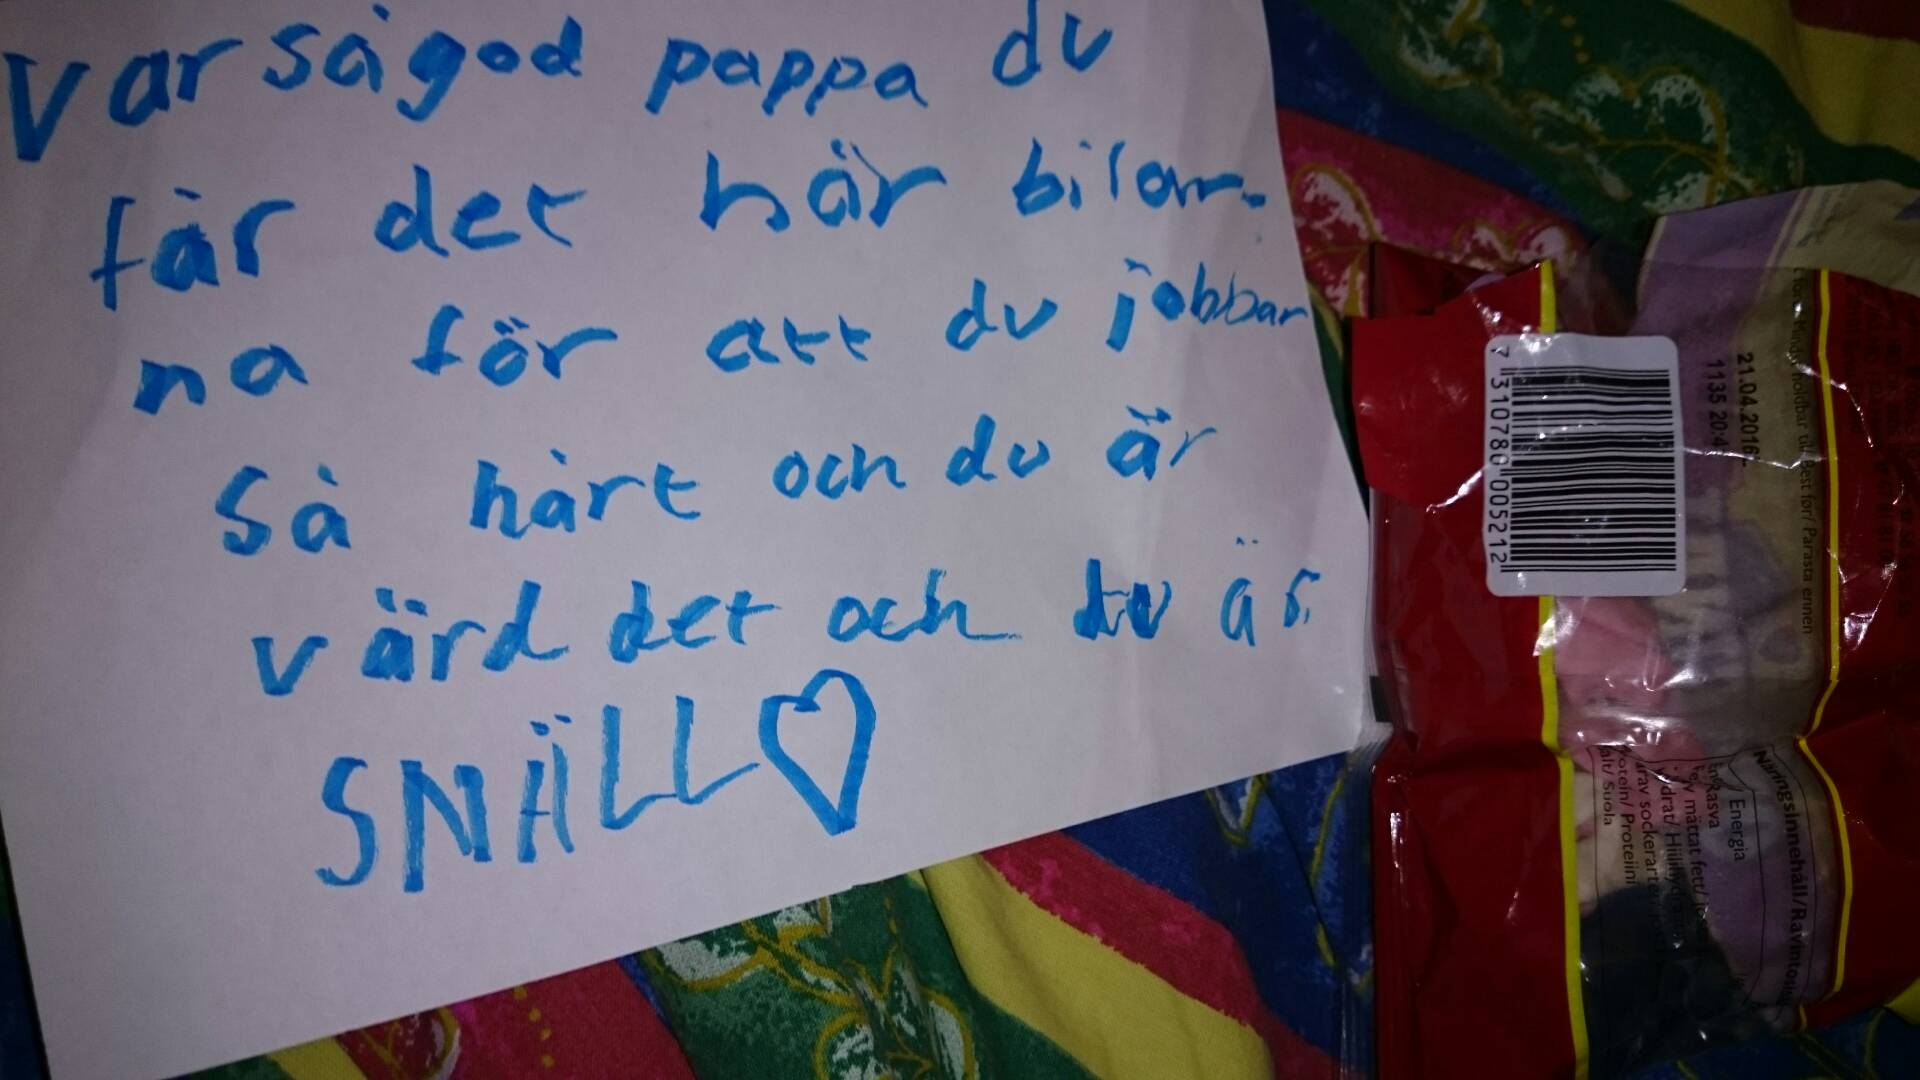 Varsågod pappa du
får det här bilar-
na för att du jobbar
så hårt och du är
värd det och du är
SNÄLL
7 310780 005212
21.04.2016
1135 20:4
Best för/ Parasta ennen
Näringsinnehåll/Ravintosi
Energi/ Energia
Rasva
mättat fett/
sockerarter
Protein/ Proteiini
Salt/ Suola